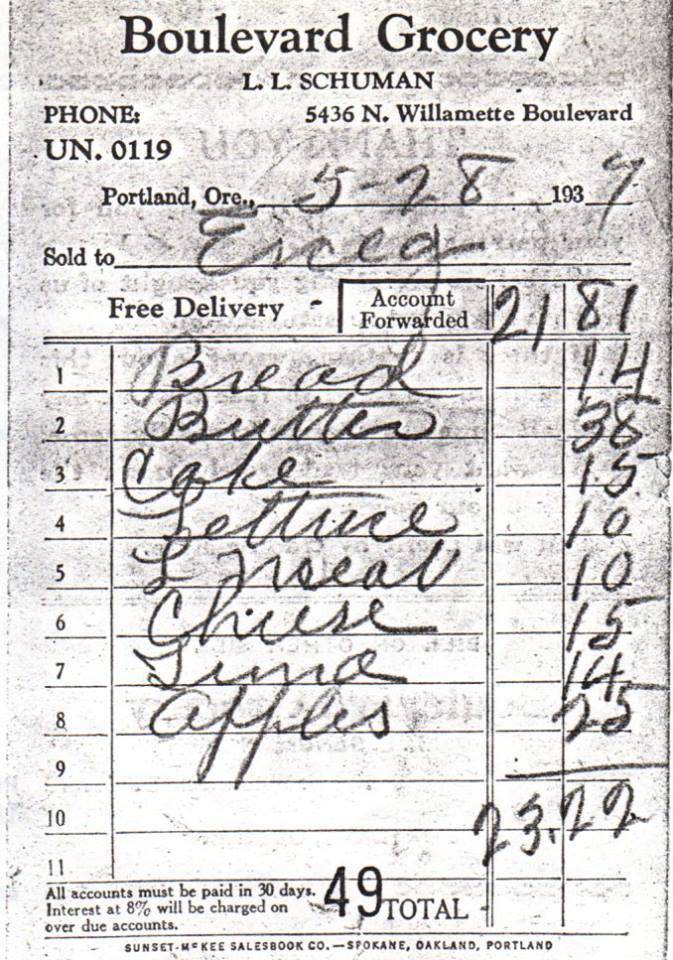 Boulevard Grocery
L. L. SCHUMAN
PHONE: 5436 N. Willamette Boulevard
UN. 0119
Portland, Ore., 5-28 1937
Sold to Erceg
Free Delivery - Account Forwarded 21 81
1 Bread 14
2 Butter 38
3 Cake 15
4 Lettuce 10
5 L Meat 10
6 Cheese 15
7 Tuna 14
8 Apples 25
9
10 23.22
11
All accounts must be paid in 30 days.
Interest at 8% will be charged on
over due accounts.
49 TOTAL
SUNSET-McKEE SALESBOOK CO.—SPOKANE, OAKLAND, PORTLAND